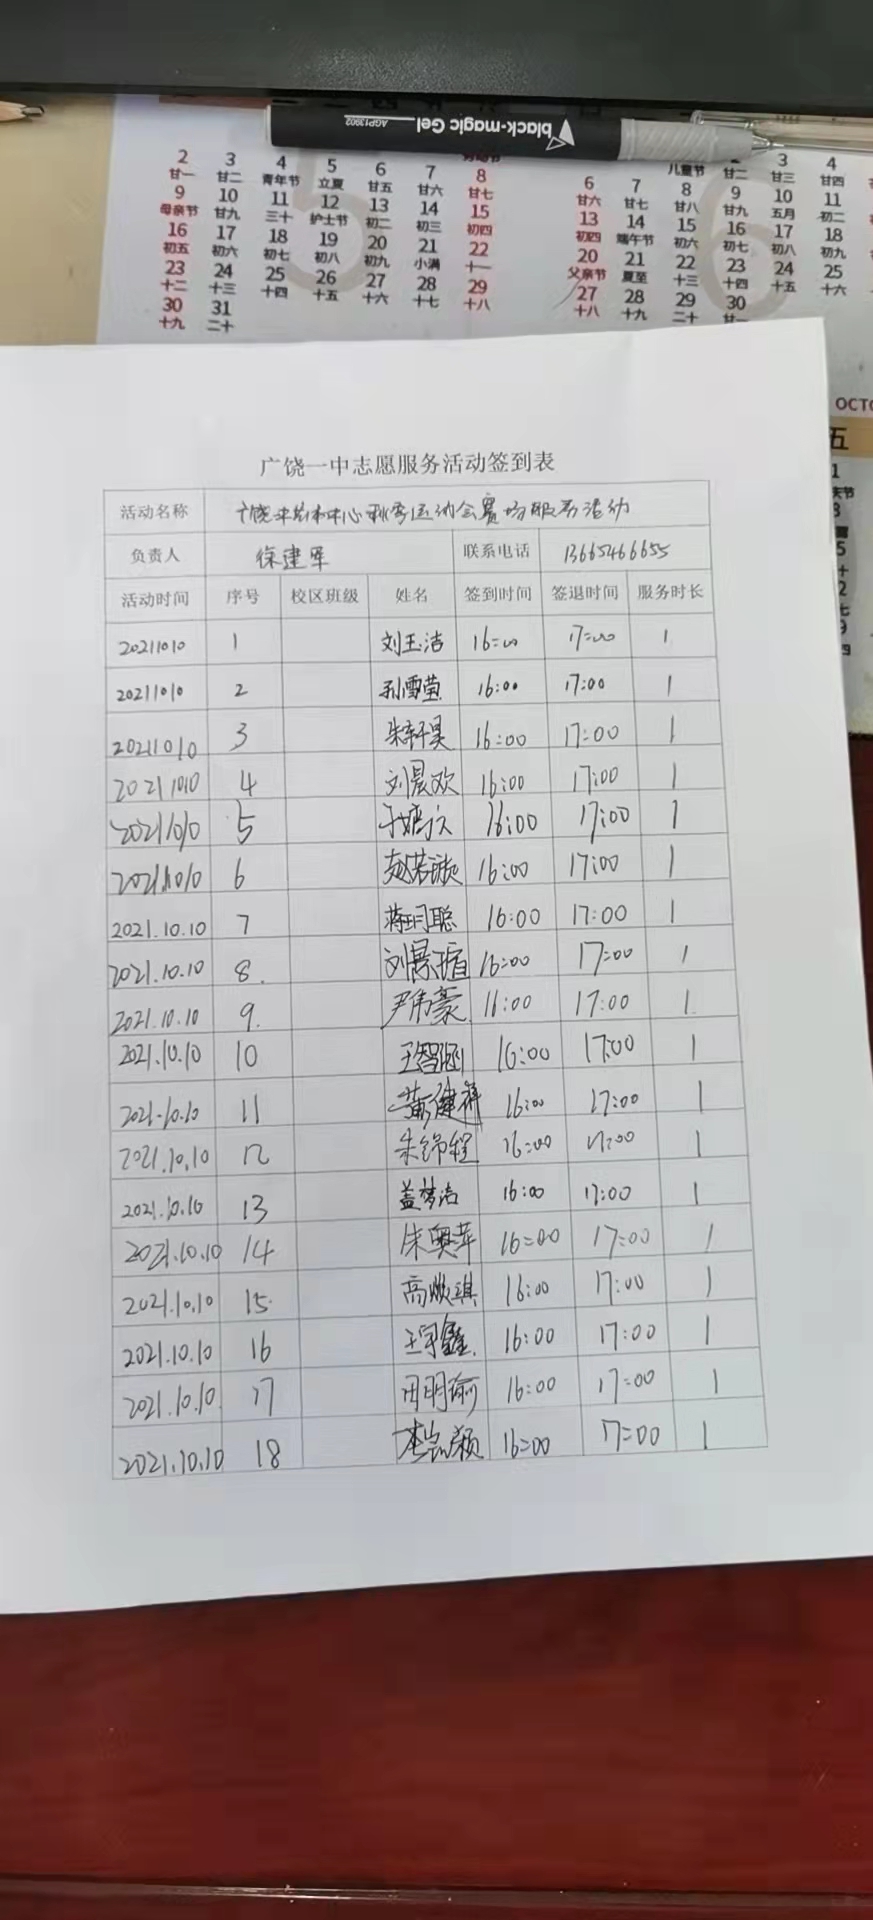 black-magic Gel
AGP13902
2 3 4 5 6 7 8
廿一 廿二 青年节 立夏 廿五 廿六 廿七
9 10 11 12 13 14 15
母亲节 廿九 三十 护士节 初二 初三 初四
16 17 18 19 20 21 22
初五 初六 初七 初八 初九 小满 十一
23 24 25 26 27 28 29
十二 十三 十四 十五 十六 十七 十八
30 31
十九 二十
儿童节 2 3 4
廿二 廿三 廿四
6 7 8 9 10 11
廿六 廿七 廿八 廿九 五月 初二
13 14 15 16 17 18
初四 端午节 初六 初七 初八 初九
20 21 22 23 24 25
父亲节 夏至 十三 十四 十五 十六
27 28 29 30
十八 十九 二十 廿一
OCTO
五
广饶一中志愿服务活动签到表
活动名称 秋季运动会赛场服务活动
负责人 徐建军 联系电话 13665466655
活动时间 序号 校区班级 姓名 签到时间 签退时间 服务时长
20211010 1 刘玉洁 16:00 17:00 1
20211010 2 孙雪莹 16:00 17:00 1
20211010 3 朱轩昊 16:00 17:00 1
20211010 4 刘晨欢 16:00 17:00 1
20211010 5 16:00 17:00 1
20211010 6 赵若璇 16:00 17:00 1
2021.10.10 7 蒋玥聪 16:00 17:00 1
2021.10.10 8. 刘景瑄 16:00 17:00 1
2021.10.10 9. 尹伟豪 16:00 17:00 1
2021.10.10 10 王智涵 16:00 17:00 1
2021.10.10 11 黄健祥 16:00 17:00 1
2021.10.10 12 朱锦程 16:00 17:00 1
2021.10.10 13 盖梦洁 16:00 17:00 1
2021.10.10 14 朱奥萍 16:00 17:00 1
2021.10.10 15 高淇 16:00 17:00 1
2021.10.10 16 王宇鑫 16:00 17:00 1
2021.10.10 17 田明瑜 16:00 17:00 1
2021.10.10 18 16:00 17:00 1